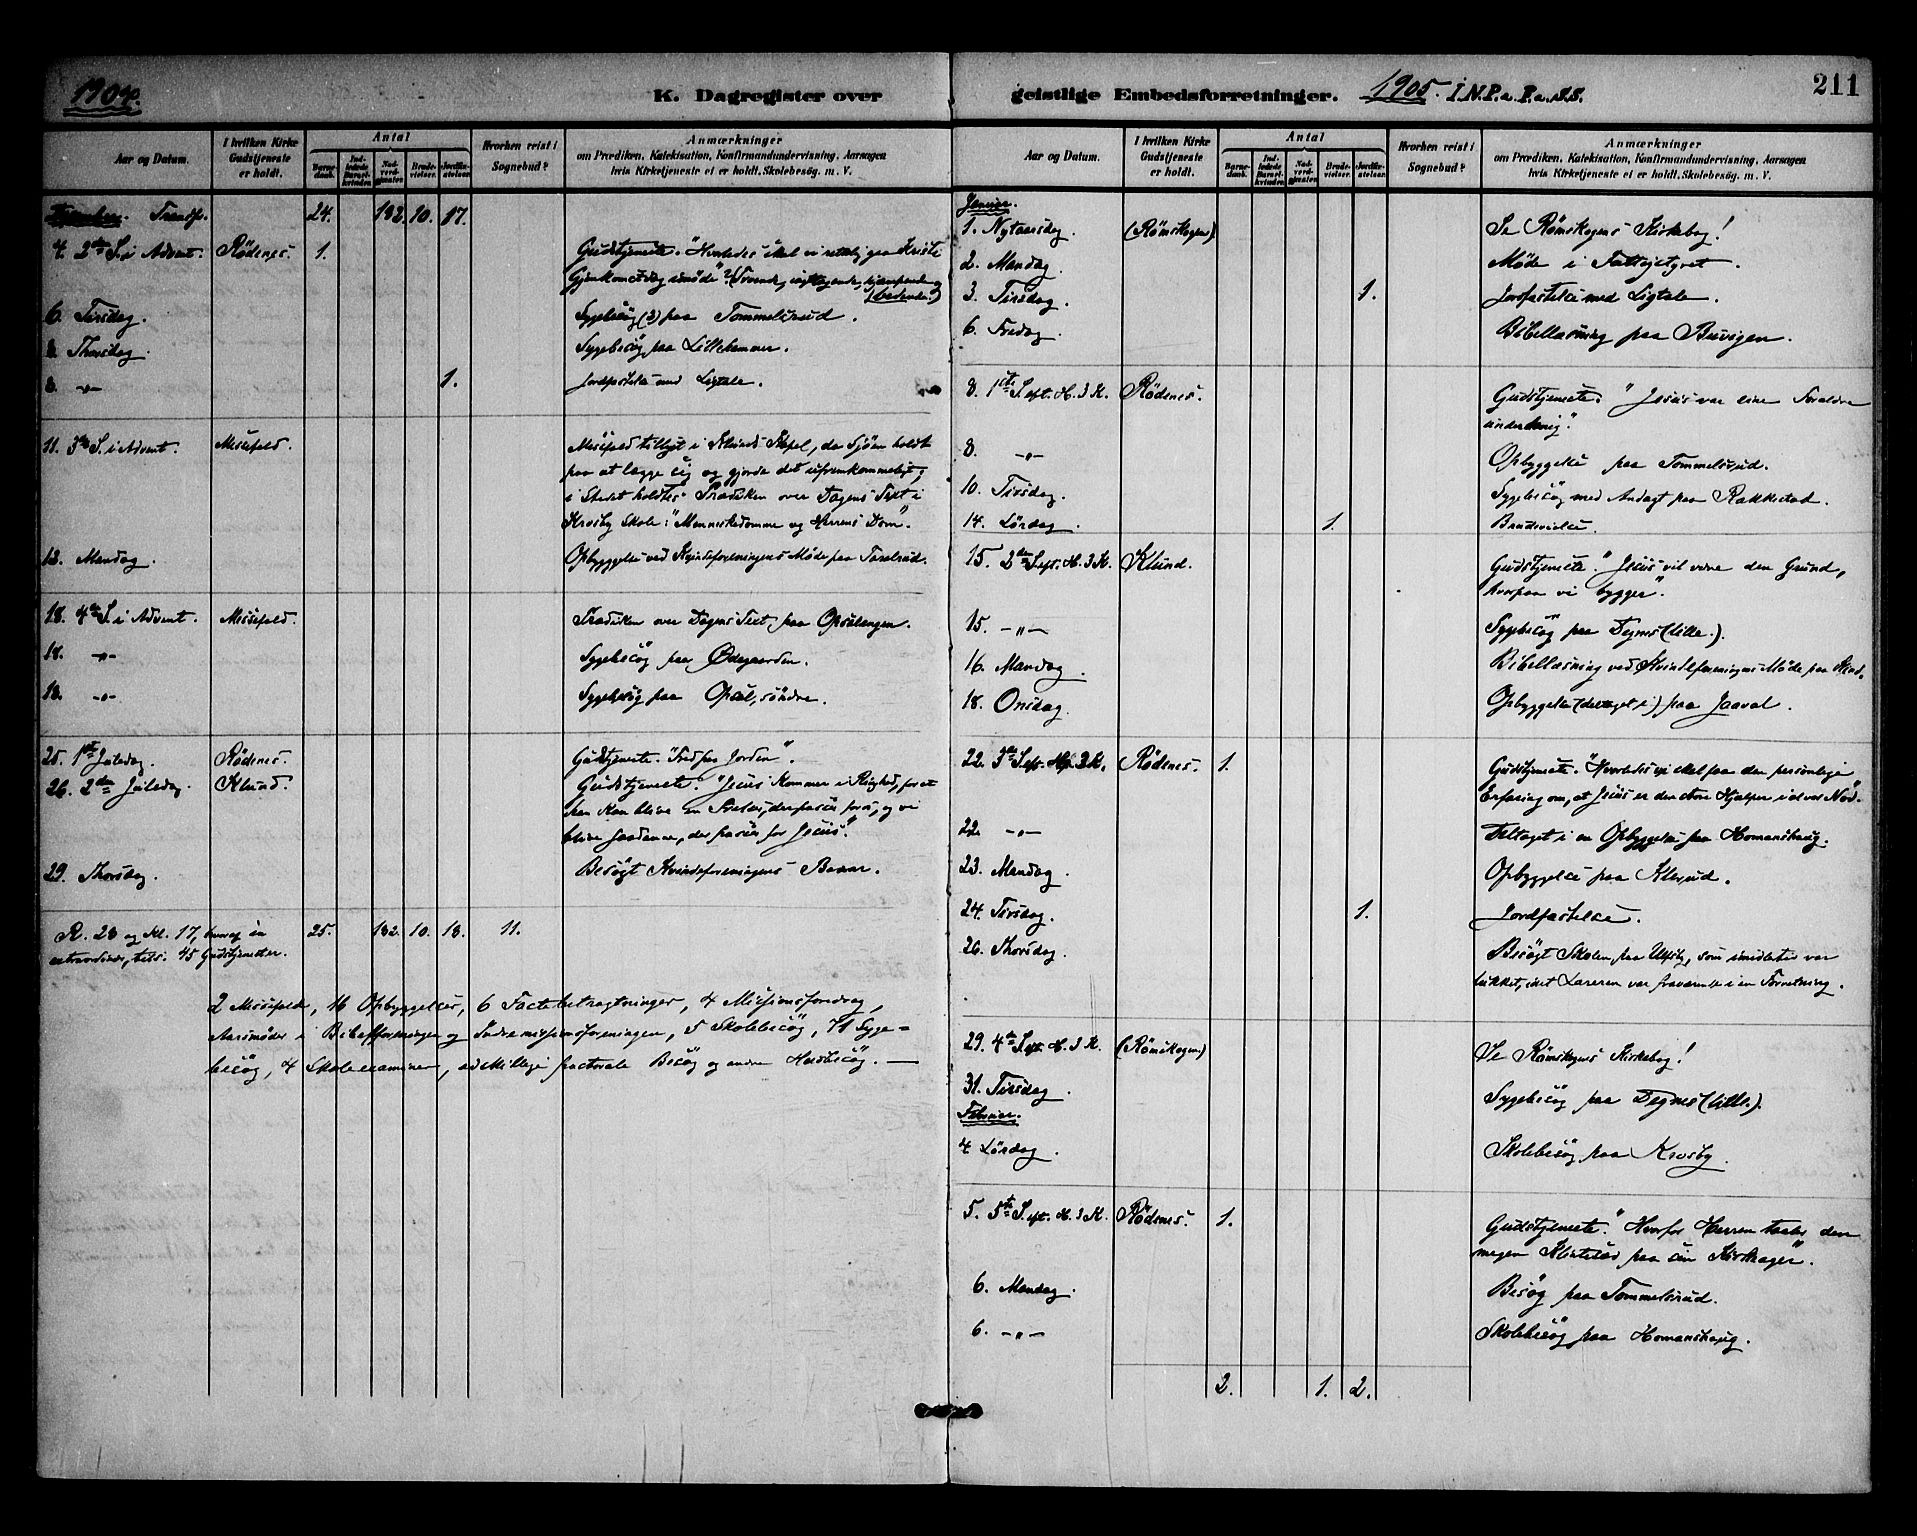 1904.
K. Dagregister over
Aar og Datum.
I hvilken Kirke
Gudstjeneste
er holdt.
Antal
Barne-
daab.
Ind-
ledede
Barsel-
kvinder.
Nad-
verd-
gjæster.
Brude-
vielser.
Jordfæ-
stelser.
Hvorhen reist i
Sognebud?
Anmærkninger
om Prædiken, Katekisation, Konfirmandundervisning, Aarsagen
hvis Kirketjeneste ei er holdt, Skolebesøg, m. V.
Transp. 24. 132 10. 17.
4. 2den S. i Advent. Rødenes. 1. Gudstjeneste. "Hvorledes skal vi rettelig gaa Kristi
Gjenkomst dag imøde"? (Troende, kjæmpende og
bedende.)
6. Tirsdag. Sygebesøg (2) paa Tommelsrud.
8. Thorsdag. Sygebesøg paa Lillekammer.
8. -"- 1. Jordfæstelse med Ligtale.
11. 3die S. i Advent. Messefald. Messefald tillyst i Klunds Kapel, da Sjøen holdt
paa at lægge sig og gjorde det ufremkommeligt;
i Stedet holdtes Prædiken over Dagens Text i
Krosby Skole: "Menneskedomme og Herrens Dom".
12. Mandag. Opbyggelse ved Kvindeforeningens Møde paa
18. 4de S. i Advent. Messefald. Prædiken over Dagens Text, paa Opsalengen.
18. -"- Sygebesøg paa Ødegaarden.
18. -"- Sygebesøg paa Opsal, søndre.
25. 1ste Juledag. Rødenes. Gudstjeneste. "Fred paa Jorden".
26. 2den Juledag. Klund. Gudstjeneste. "Jesus kommer i Ringhed, for at
han kan blive en Frelser, der passer for os, og vi
blive Saadanne, der passer for Jesus".
29. Thorsdag. Besøgt Kvindeforeningens Basar.
R. 28 og Kl. 17, hvoraf en 25. 132. 10. 18. 11.
extraordinær, tils. 45 Gudstjenester.
2 Messefald, 16 Opbyggelser, 6 Fastebetragtninger, 4 Missionsforedrag,
Aarsmøder i Bibelforeningen og Indremissionsforeningen, 5 Skolebesøg, 71 Syge-
besøg, 4 Skoleexaminer, adskillige pastorale Besøg og andre Husbesøg. —
geistlige Embedsforretninger. 1905. I.N.P.a.F.a.S.S. 211
Aar og Datum.
I hvilken Kirke
Gudstjeneste
er holdt.
Antal
Barne-
daab.
Ind-
ledede
Barsel-
kvinder.
Nad-
verd-
gjæster.
Brude-
vielser.
Jordfæ-
stelser.
Hvorhen reist i
Sognebud?
Anmærkninger
om Prædiken, Katekisation, Konfirmandundervisning, Aarsagen
hvis Kirketjeneste ei er holdt, Skolebesøg, m. V.
Januar.
1. Nytaarsdag. (Rømskogen) Se Rømskogens Kirkebog!
2. Mandag. Møde i Fattigstyret.
3. Tirsdag. 1. Jordfæstelse med Ligtale.
6. Fredag. Bibellæsning paa Buvigen.
8. 1ste S. eft. H. 3 K. Rødenes. Gudstjeneste. "Jesus var sine Forældre
underdanig".
8. -"- Opbyggelse paa Tommelsrud.
10. Tirsdag. Sygebesøg med Andagt paa Rakkestad.
14. Lørdag. 1. Brudevielse.
15. 2den S. eft. H. 3 K. Klund. Gudstjeneste. "Jesus vil være den Grund,
hvorpaa vi bygger".
15. -"- Sygebesøg paa Tegnes (lille).
16. Mandag. Bibellæsning ved Kvindeforenings Møde paa
18. Onsdag. Opbyggelse (deltaget i) paa Jaaval.
22. 3die S. eft. H. 3 K. Rødenes. 1. Gudstjeneste. "Hvorledes vi skal faa den personlige
Erfaring om, at Jesus er den store Hjælper i al vor Nød".
22. -"- Deltaget i en Opbyggelse paa Homanshaug.
23. Mandag. Opbyggelse paa Klesrud.
24. Tirsdag. 1. Jordfæstelse.
26. Thorsdag. Besøgt Skolen paa Ulfsby, som imidlertid var
lukket, idet Læreren var fraværende i en Forretning.
29. 4de S. eft. H. 3 K. (Rømskogen) Se Rømskogens Kirkebog!
31. Tirsdag. Sygebesøg paa Tegnes (lille).
Februar.
4. Lørdag. Skolebesøg paa Krosby.
5. 5te S. eft. H. 3 K. Rødenes. 1. Gudstjeneste. "Hvorfor Herren taaler den
megen Klintesæd paa sin Kirkeager".
6. Mandag. Besøg paa Tommelsrud.
6. -"- Skolebesøg paa Homanshaug.
2. 1. 2.